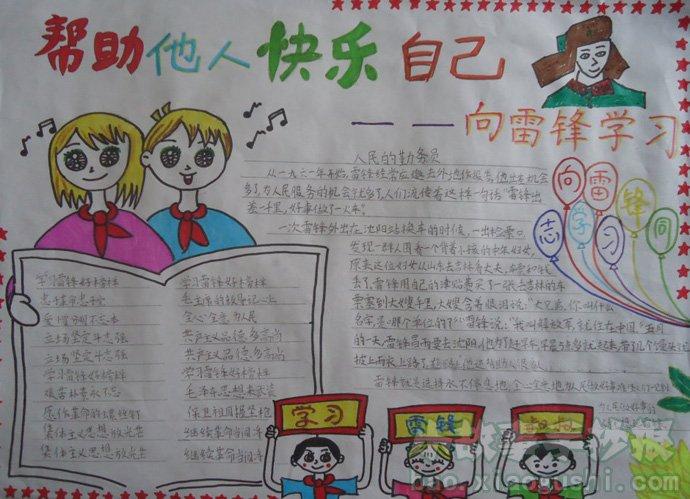 帮助他人快乐自己
——向雷锋学习
人民的勤务员
从一九六一年开始,雷锋经常应邀去外地作报告,他出差机会
多了,为人民服务的机会就多了,人们流传着这样一句话:“雷锋出
差一千里,好事做了一火车。”
一次雷锋外出在沈阳站换车的时候,一出检票口,
发现一群人围着一个背着小孩的中年妇女,
原来这位妇女从山东去吉林看丈夫,
雷锋用自己的津贴费买了一张去吉林的车
票塞到大嫂手里,大嫂含着眼泪说:“大兄弟,你叫什么
名字,是哪个单位的?”雷锋说:“我叫解放军,就住在中国”五月
的一天,雷锋冒雨要去沈阳,他为了赶早车,早晨5点多就起来,带了几个馒头
披上雨衣上路了,
雷锋就是这样永不停息地,全心全意地为人民做好事
向雷锋同志学习
学习雷锋好榜样
忠于革命忠于党
爱憎分明不忘本
立场坚定斗志强
立场坚定斗志强
学习雷锋好榜样
艰苦朴素永不忘
愿作革命的螺丝钉
集体主义思想放光芒
集体主义思想放光芒
学习雷锋好榜样
毛主席的教导记心上
全心全意为人民
共产主义品德多高尚
共产主义品德多高尚
学习雷锋好榜样
毛泽东思想来武装
保卫祖国握紧枪
继续革命当闯将
继续革命当闯将
学习
雷锋
叔叔
bao.xiaogushi.com